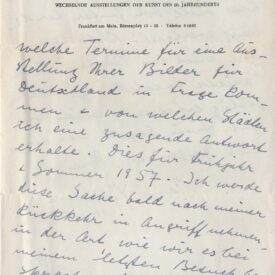 WECHSELNDE AUSSTELLUNGEN DER KUNST DES 20. JAHRHUNDERTS
Frankfurt am Main, Börsenplatz 13 - 15 · Telefon
welche Termine für eine Aus-
stellung Ihrer Bilder für
Deutschland in Frage kom-
men & von welchen Städten
ich eine zusagende Antwort
erhalte. Dies für Frühjahr
& Sommer 1957. Ich werde
diese Sache bald nach meiner
Rückkehr in Angriff nehmen,
in der Art wie wir es bei
meinem letzten Besuch be-